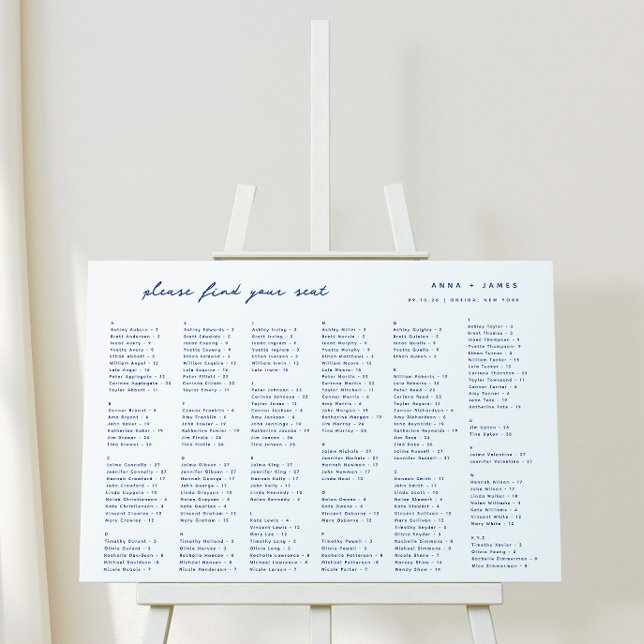 please find your seat
ANNA + JAMES
09.13.26 | ONEIDA, NEW YORK
A
Ashley Auburn - 3
Brett Anderson - 3
Isaac Avery - 9
Yvette Avery - 9
Ethan Abbott - 11
William Angel - 15
Lola Angel - 15
Peter Applegate - 22
Corinne Applegate - 22
Taylor Abbott - 11
B
Connor Bryant - 5
Amy Bryant - 5
John Baker - 19
Katherine Baker - 19
Jim Brewer - 26
Tina Brewer - 26
C
Jaime Connelly - 27
Jennifer Connelly - 27
Hannah Crawford - 17
John Crawford - 17
Linda Cappers - 10
Nolan Christianson - 4
Kate Christianson - 4
Vincent Crowley - 12
Mary Crowley - 12
D
Timothy Durant - 2
Olivia Durant - 2
Rachelle Davidson - 8
Michael Davidson - 8
Nicole Dubois - 7
E
Ashley Edwards - 3
Brett Edwards - 3
Isaac Eoyang - 9
Yvette Eoyang - 9
Ethan Edmond - 11
William Esquire - 15
Lola Esquire - 15
Peter Elliott - 22
Corinne Elliott - 22
Taylor Emery - 11
F
Connor Franklin - 5
Amy Franklin - 5
John Fowler - 19
Katherine Fowler - 19
Jim Finkle - 26
Tina Finkle - 26
G
Jaime Gibson - 27
Jennifer Gibson - 27
Hannah George - 17
John George - 17
Linda Grayson - 10
Nolan Hamilton - 4
Kate Hamilton - 4
Vincent Graham - 12
Mary Graham - 12
H
Timothy Holland - 2
Olivia Harvey - 2
Rachelle Hansen - 8
Michael Hansen - 8
Nicole Henderson - 7
I
Ashley Irving - 3
Brett Irving - 3
Isaac Ingram - 9
Yvette Ingram - 9
Ethan Iverson - 11
William Irwin - 15
Lola Irwin - 15
J
Peter Johnson - 22
Corinne Johnson - 22
Taylor Jones - 11
Connor Jackson - 5
Amy Jackson - 5
John Jennings - 19
Katherine Jacobs - 19
Jim Jensen - 26
Tina Jensen - 26
K
Jaime King - 27
Jennifer King - 27
Hannah Kelly - 17
John Kelly - 17
Linda Kennedy - 10
Nolan Kennedy - 4
L
Kate Lewis - 4
Vincent Lewis - 12
Mary Lee - 12
Timothy Long - 2
Olivia Long - 2
Rachelle Lawrence - 8
Michael Lawrence - 8
Nicole Larson - 7
M
Ashley Miller - 3
Brett Marvin - 3
Isaac Murphy - 9
Yvette Murphy - 9
Ethan Matthews - 11
William Moore - 15
Lola Moore - 15
Peter Martin - 22
Corinne Martin - 22
Taylor Mitchell - 11
Connor Morris - 5
Amy Morris - 5
John Morgan - 19
Katherine Morgan - 19
Jim Murray - 26
Tina Murray - 26
N
Jaime Nichols - 27
Jennifer Nichols - 27
Hannah Newman - 17
John Newman - 17
Linda Neal - 10
O
Nolan Owens - 4
Kate Owens - 4
Vincent Osborne - 12
Mary Osborne - 12
P
Timothy Powell - 2
Olivia Powell - 2
Rachelle Patterson - 8
Michael Patterson - 8
Nicole Porter - 7
Q
Ashley Quigley - 3
Brett Quigley - 3
Isaac Qualls - 9
Yvette Qualls - 9
Ethan Queen - 11
R
William Roberts - 15
Lola Roberts - 15
Peter Reed - 22
Corinne Reed - 22
Taylor Rogers - 11
Connor Richardson - 5
Amy Richardson - 5
John Reynolds - 19
Katherine Reynolds - 19
Jim Rose - 26
Tina Rose - 26
Jaime Russell - 27
Jennifer Russell - 27
S
Hannah Smith - 17
John Smith - 17
Linda Scott - 10
Nolan Stewart - 4
Kate Stewart - 4
Vincent Sullivan - 12
Mary Sullivan - 12
Timothy Snyder - 2
Olivia Snyder - 2
Rachelle Simmons - 8
Michael Simmons - 8
Nicole Stone - 7
Harvey Shaw - 14
Wendy Shaw - 14
T
Ashley Taylor - 3
Brett Thomas - 3
Isaac Thompson - 9
Yvette Thompson - 9
Ethan Turner - 11
William Tucker - 15
Lola Tucker - 15
Corinne Thornton - 22
Taylor Townsend - 11
Connor Tanner - 5
Amy Tanner - 5
John Tate - 19
Katherine Tate - 19
U
Jim Upton - 26
Tina Upton - 26
V
Jaime Valentine - 27
Jennifer Valentine - 27
W
Hannah Wilson - 17
John Wilson - 17
Linda Walker - 10
Nolan Williams - 4
Kate Williams - 4
Vincent White - 12
Mary White - 12
X,Y,Z
Timothy Xavier - 2
Olivia Young - 2
Rachelle Zimmerman - 8
Mica Zimmerman - 8